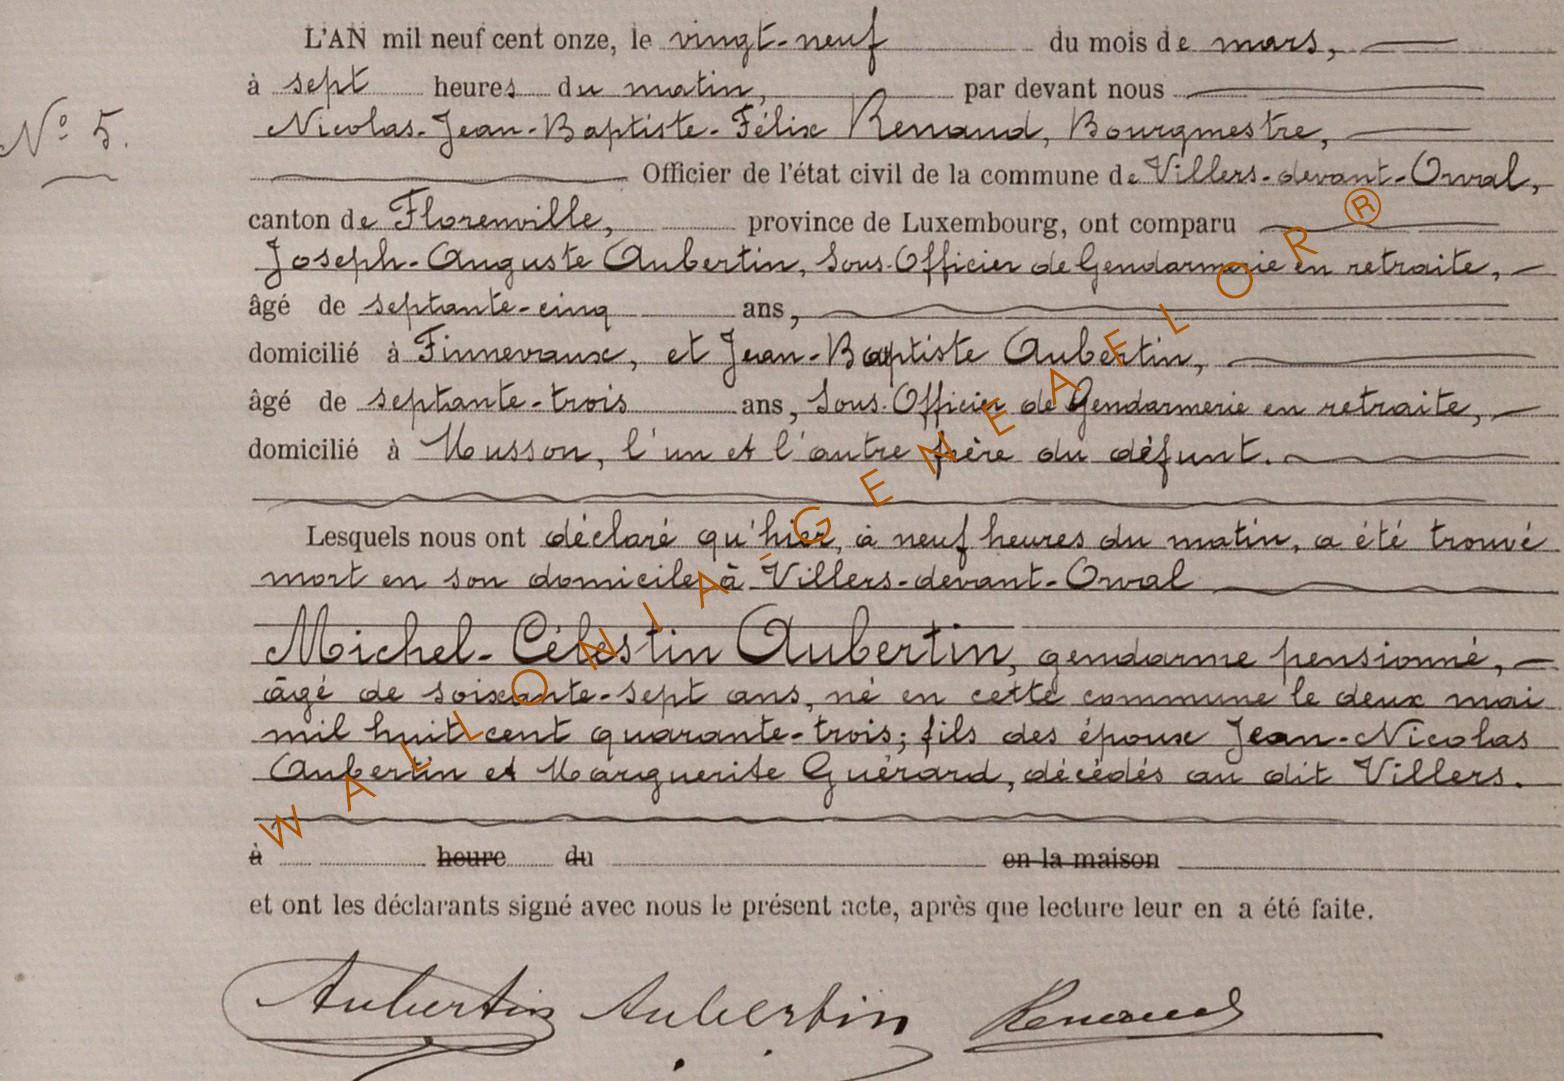 L'AN mil neuf cent onze, le vingt-neuf du mois de mars,
à sept heures du matin, par devant nous
Nicolas-Jean-Baptiste-Félix Renaud, Bourgmestre,
N° 5.
Officier de l'état civil de la commune de Villers-devant-Orval,
canton de Florenville, province de Luxembourg, ont comparu
Joseph-Auguste Aubertin, Sous-Officier de Gendarmerie en retraite,
âgé de septante-cinq ans,
domicilié à Finnevaux, et Jean-Baptiste Aubertin,
âgé de septante-trois ans, Sous-Officier de Gendarmerie en retraite,
domicilié à Musson, l'un et l'autre frère du défunt.
Lesquels nous ont déclaré qu'hier, à neuf heures du matin, a été trouvé
mort en son domicile à Villers-devant-Orval
Michel-Célestin Aubertin, gendarme pensionné,
âgé de soixante-sept ans, né en cette commune le deux mai
mil huit cent quarante-trois; fils des époux Jean-Nicolas
Aubertin et Marguerite Guérard, décédés au dit Villers.
à heure du en la maison
et ont les déclarants signé avec nous le présent acte, après que lecture leur en a été faite.
Aubertin Aubertin Renaud
WALLONIA-GENEAELOR®